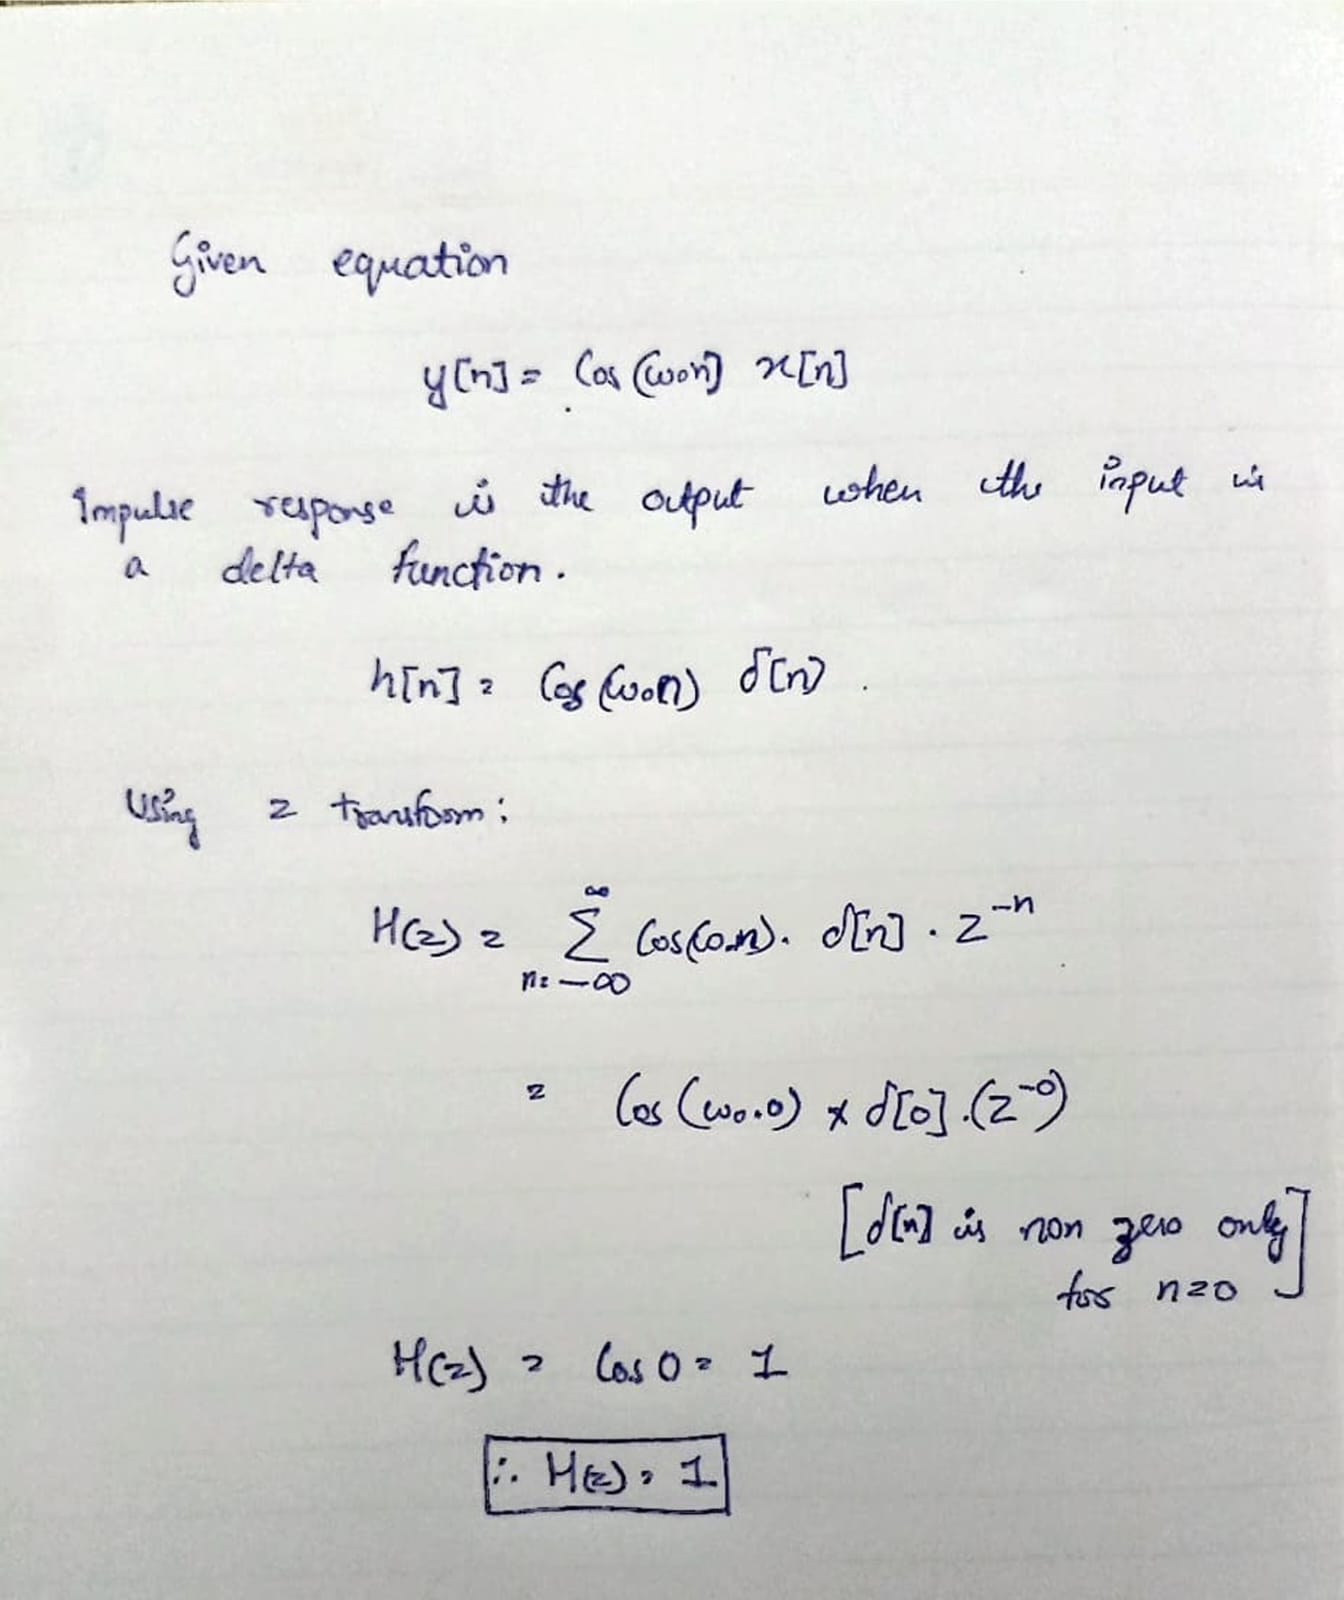 Given equation
y[n] = Cos (ω₀n) x[n]
Impulse response is the output when the input is
a delta function.
h[n] = Cos (ω₀n) δ[n].
Using z transform:
H(z) = ∞ Σ n=-∞ Cos(ω₀n). δ[n] . z⁻ⁿ
= Cos (ω₀.0) x δ[0].(z⁻⁰)
[δ[n] is non zero only
for n=0]
H(z) = Cos 0 = 1
∴ H(z) = 1